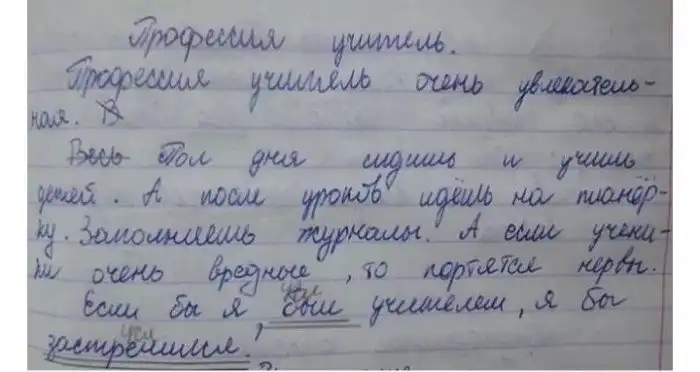 Профессия учитель.
Профессия учитель очень увлекатель-
ная. В
Весь Пол дня сидишь и учишь
детей. А после уроков идёшь на планёр-
ку. Заполняешь журналы. А если учени-
ки очень вредные, то портятся нервы.
Если бы я был учителем, я бы
застрелился.